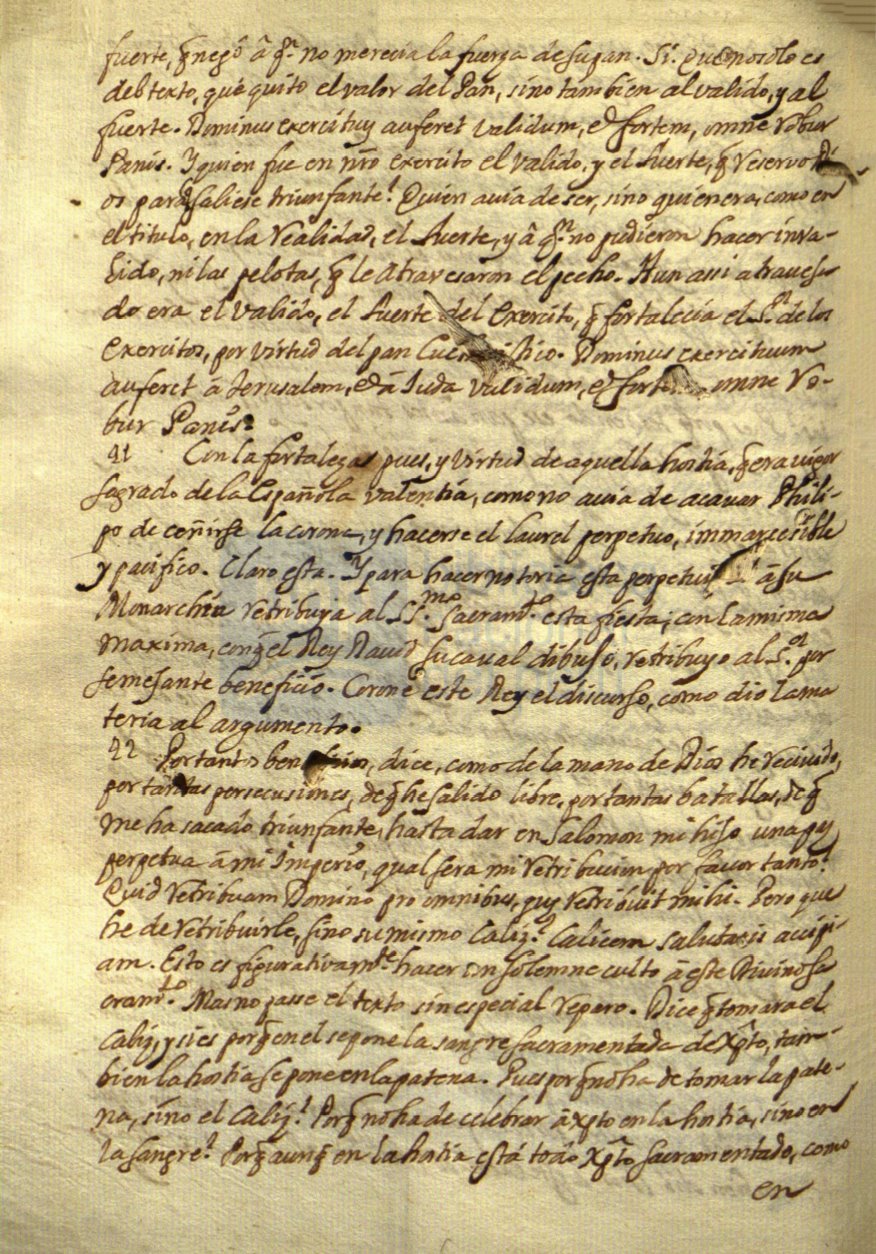 fuerte, q̃ negô â q.ⁿ no merecia la fuerza de su pan. Si. Que no solo es
del texto, què quitò el valor del Pan, sino tambien al valido, y al
fuerte. Dominus exercituũ auferet validum, et fortem, omne robur
Panis. Y quien fue en nr̃o exercito el valido, y el fuerte, q̃ reservo Di-
os para q̃ saliese triunfante? Quien auia de ser, sino quien era, como en
el titulo, en la realidad, el fuerte, y â q.ⁿ no pudieron hacer inva-
lido, ni las pelotas, q̃ le atravesaron el pecho. Aun assi atravesa-
do era el valido, el fuerte del Exercito, q̃ fortalecia el S.ᵒʳ de los
Exercitos, por virtud del pan Eucharistico. Dominus exercituum
auferet â Jerusalem, et â Juda validum, et fortem omne ro-
bur Panis.
41 Con la fortaleza pues, y virtud de aquella hostia, q̃ era vigor
sagrado de la Española valentia, como no auia de acauar Phili-
po de ceñirse la corona, y hacerse el laurel perpetuo, immarcesible
y pacifico. Claro esta. Y para hacer notoria esta perpetui â su
Monarchia retribuya al SS.ᵐᵒ Sacram.ᵗᵒ esta fiesta, con la misma
maxima, con q̃ el Rey Dauid su caual dibuso, retribuyo al S.ᵒʳ por
semesante beneficio. Corone este Rey el discurso, como dio la ma
teria al argumento.
42 Por tantos beneficios, dice, como de la mano de Dios he recivido,
por tantas persecusiones, de q̃ he salido libre, por tantas batallas, de q̃
me ha sacado triunfante, hasta dar en Salomon mi hiso una paz
perpetua â mi Imperio, qual sera mi retribucion por favor tanto?
Quid retribuam Domino pro omnibus, quę retribuit mihi. Pero que
he de retribuirle, sino su mismo Caliz? Calicem salutaris accipi-
am. Esto es figurativam.ᵗᵉ hacer un solemne culto â este Divino Sa
cram.ᵗᵒ Mas no passe el texto sin especial reparo. Dice q̃ tomara el
Caliz, y si es porq̃ en el se pone la sangre sacramentada de Xp̃to, tam-
bien la hostia se pone en la patena. Pues porq̃ no ha de tomar la pate-
na, sino el Caliz? Porq̃ no ha de celebrar â Xpto en la hostia, sino en
la sangre? Porq̃ aunq̃ en la hostia està todo Xp̃to Sacramentado, como
en